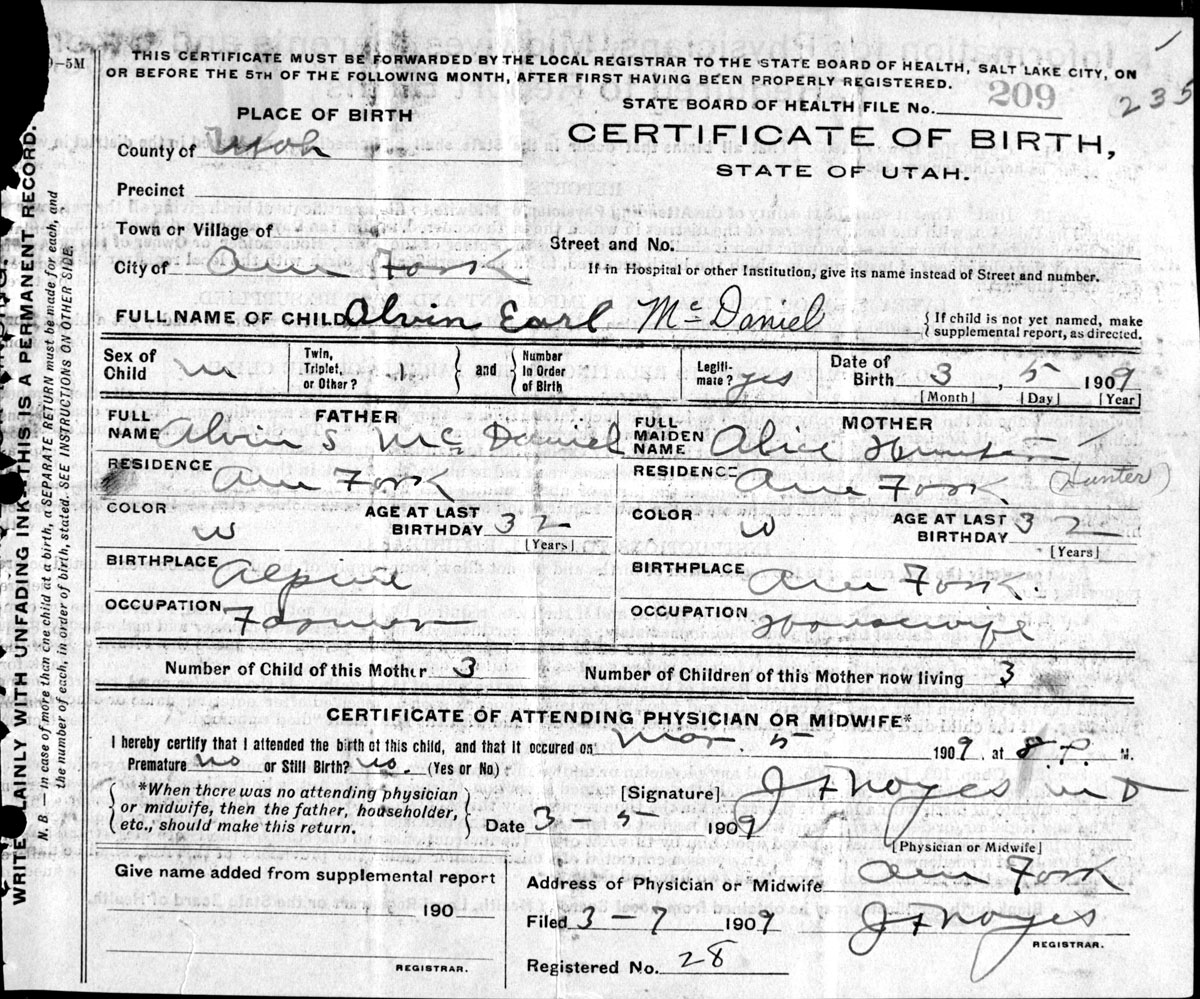 9-5M
THIS CERTIFICATE MUST BE FORWARDED BY THE LOCAL REGISTRAR TO THE STATE BOARD OF HEALTH, SALT LAKE CITY, ON
OR BEFORE THE 5TH OF THE FOLLOWING MONTH, AFTER FIRST HAVING BEEN PROPERLY REGISTERED.
STATE BOARD OF HEALTH FILE No. 209 235
PLACE OF BIRTH
CERTIFICATE OF BIRTH,
STATE OF UTAH.
County of Utah
Precinct
Town or Village of
Street and No.
City of Am Fork
If in Hospital or other Institution, give its name instead of Street and number.
FULL NAME OF CHILD Alvin Earl McDaniel
{If child is not yet named, make
supplemental report, as directed.
Sex of Child m Twin, Triplet, or Other? 1 } and { Number In Order of Birth Legiti-mate? yes Date of Birth 3, 5 1909
[Month] [Day] [Year]
FATHER
FULL NAME Alvin S McDaniel
MOTHER
FULL MAIDEN NAME Alice Hunter
(Hunter)
RESIDENCE Am Fork
RESIDENCE Am Fork
COLOR w AGE AT LAST BIRTHDAY 32
[Years]
COLOR w AGE AT LAST BIRTHDAY 32
[Years]
BIRTHPLACE Alpine
BIRTHPLACE Am Fork
OCCUPATION Farmer
OCCUPATION Housewife
Number of Child of this Mother 3
Number of Children of this Mother now living 3
CERTIFICATE OF ATTENDING PHYSICIAN OR MIDWIFE*
I hereby certify that I attended the birth of this child, and that it occured on Mar. 5 1909, at 8 P. M.
Premature no or Still Birth? no. (Yes or No)
{*When there was no attending physician
or midwife, then the father, householder,
etc., should make this return.}
[Signature] J F Noyes M D
Date 3-5 1909
[Physician or Midwife]
Give name added from supplemental report
190
REGISTRAR.
Address of Physician or Midwife Am Fork
Filed 3-7 1909 J F Noyes
REGISTRAR.
Registered No. 28
WRITE PLAINLY WITH UNFADING INK-THIS IS A PERMANENT RECORD.
N. B. — In case of more than one child at a birth, a SEPARATE RETURN must be made for each, and
the number of each, in order of birth, stated. SEE INSTRUCTIONS ON OTHER SIDE.